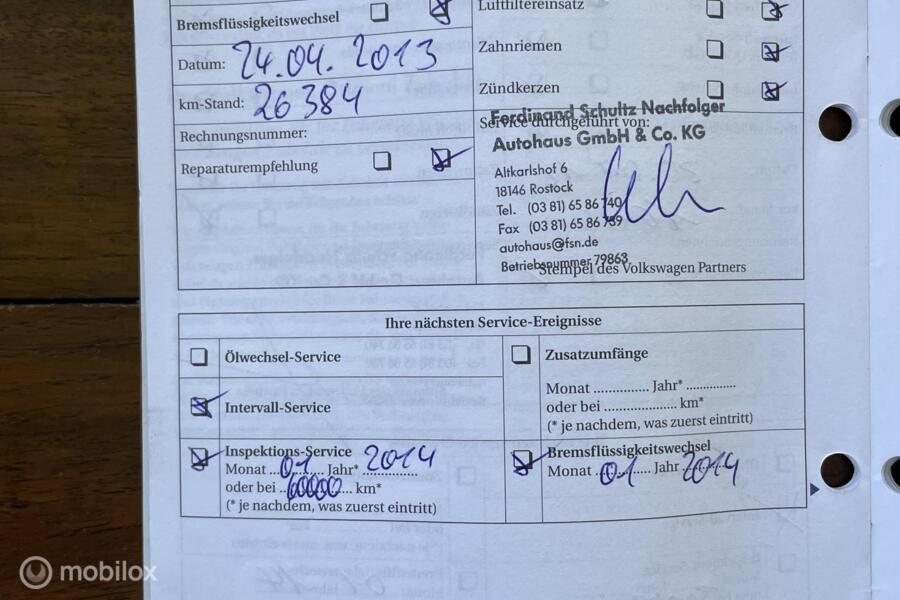 Bremsflüssigkeitswechsel
Datum: 24.04.2013
km-Stand: 26384
Rechnungsnummer:
Reparaturempfehlung
Luftfiltereinsatz
Zahnriemen
Zündkerzen
Service durchgeführt von:
Ferdinand Schultz Nachfolger
Autohaus GmbH & Co. KG
Altkarlshof 6
18146 Rostock
Tel. (03 81) 65 86 740
Fax (03 81) 65 86 739
autohaus@fsn.de
Betriebsnummer 79863
Stempel des Volkswagen Partners
Ihre nächsten Service-Ereignisse
Ölwechsel-Service
Intervall-Service
Inspektions-Service
Monat ...01... Jahr* 2014
oder bei ..60000... km*
(* je nachdem, was zuerst eintritt)
Zusatzumfänge
Monat .............. Jahr* .............
oder bei .................... km*
(* je nachdem, was zuerst eintritt)
Bremsflüssigkeitswechsel
Monat ..01.... Jahr 2014
mobilox